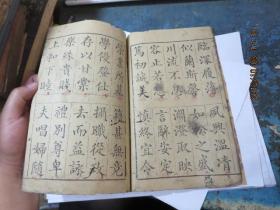 臨深履薄 夙興溫凊
似蘭斯馨 如松之盛
川流不息 淵澄取映
容止若思 言辭安定
篤初誠美 慎終宜令
榮業所基 籍甚無竟
學優登仕 攝職從政
存以甘棠 去而益詠
樂殊貴賤 禮別尊卑
上和下睦 夫唱婦隨